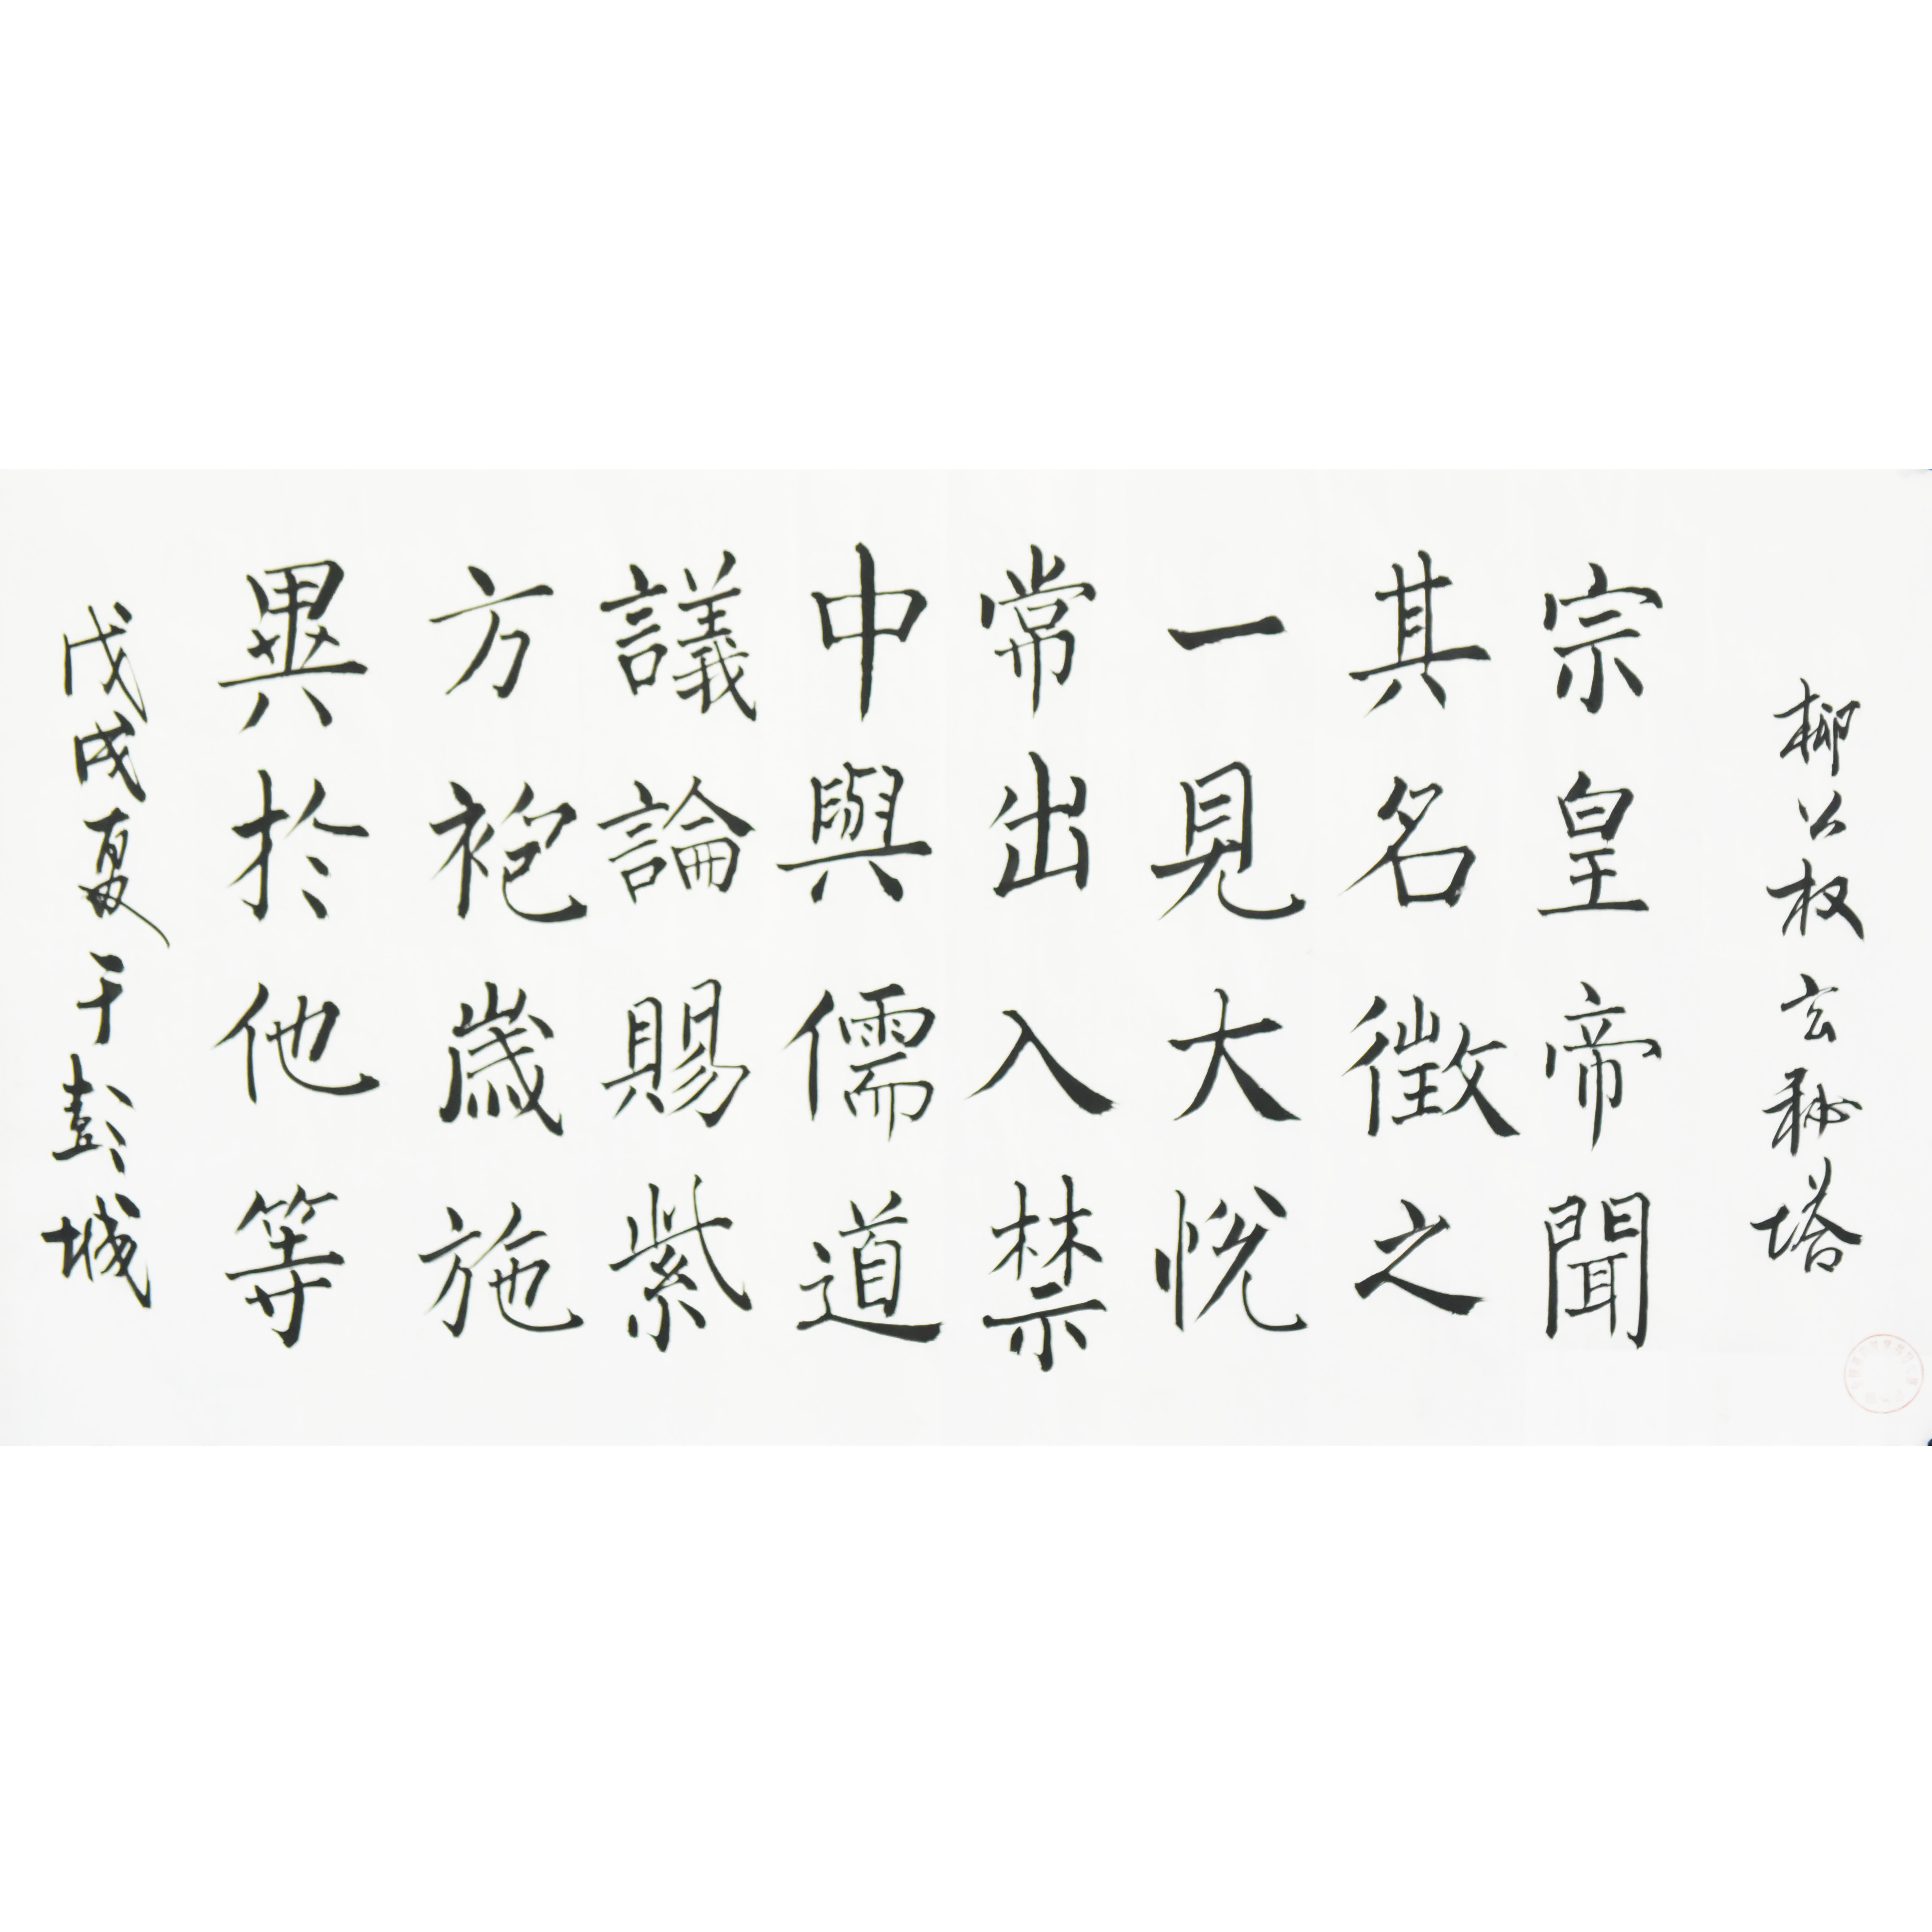 柳公权玄秘塔
宗皇帝聞
其名徵之
一見大悅
常出入禁
中與儒道
議論賜紫
方袍歲施
異於他等
戊戌夏于彭城